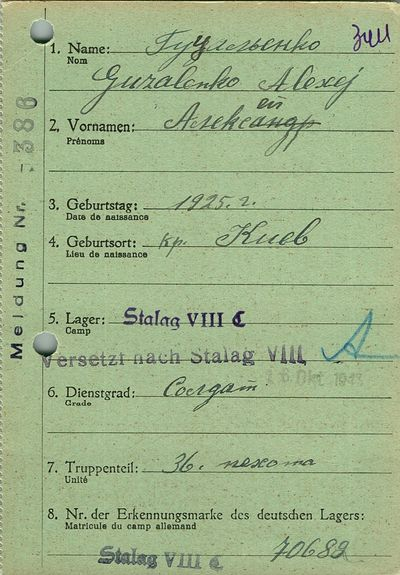 1. Name: Гуцаленко
Nom
Guzalenko Alexej
ей
2. Vornamen: Александр
Prénoms
3. Geburtstag: 1925. г.
Date de naissance
4. Geburtsort: Киев
Lieu de naissance
5. Lager: Stalag VIII C
Camp
Versetzt nach Stalag VIII A
Okt 1943
6. Dienstgrad: Солдат
Grade
7. Truppenteil: 36. пехота
Unité
8. Nr. der Erkennungsmarke des deutschen Lagers:
Matricule du camp allemand
Stalag VIII C 70682
Meldung Nr. 386